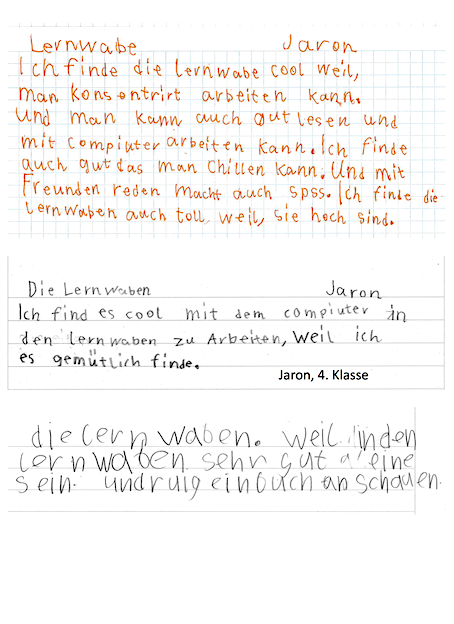 Lernwabe Jaron
Ich finde die lernwabe cool weil,
man konsontrirt arbeiten kann.
Und man kann auch gut lesen und
mit compiuter arbeiten kann. Ich finde
auch gut das man chillen kann. Und mit
Freunden reden macht auch spss. Ich finde die
Lernwaben auch toll weil, sie hoch sind.
Die Lernwaben Jaron
Ich find es cool mit dem compiuter in
den lernwaben zu Arbeiten, weil ich
es gemütlich finde.
Jaron, 4. Klasse
die lern waben. weil inden
lern waben sehr gut eine
sein. und ruig ein buch an schauen.